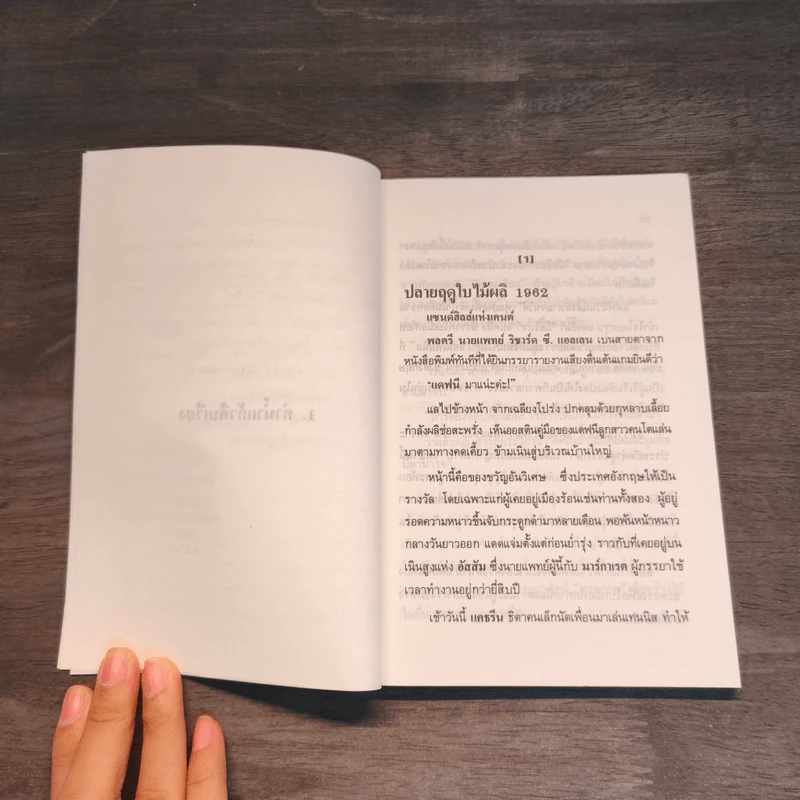 (1)
ปลายฤดูใบไม้ผลิ 1962
แซนด์ฮิลล์แห่งเคนต์
พลตรี นายแพทย์ ริชาร์ด ซี. แอลเลน เบนสายตาจาก
หนังสือพิมพ์ทันทีที่ได้ยินภรรยารายงานเสียงตื่นเต้นแกมยินดีว่า
"แดฟนี มาแน่ะค่ะ!"
แลไปข้างหน้า จากเฉลียงโปร่ง ปกคลุมด้วยกุหลาบเลื้อย
กำลังผลิช่อสะพรั่ง เห็นออสตินคู่มือของแดฟนีลูกสาวคนโตแล่น
มาตามทางคดเคี้ยว ข้ามเนินสู่บริเวณบ้านใหญ่
หน้านี้คือของขวัญอันวิเศษ ซึ่งประเทศอังกฤษให้เป็น
รางวัล โดยเฉพาะแก่ผู้เคยอยู่เมืองร้อนเช่นท่านทั้งสอง ผู้อยู่
รอดความหนาวชื้นจับกระดูกดำมาหลายเดือน พอพ้นหน้าหนาว
กลางวันยาวออก แดดแจ่มตั้งแต่ก่อนย่ำรุ่ง ราวกับที่เคยอยู่บน
เนินสูงแห่ง อัสสัม ซึ่งนายแพทย์ผู้นี้กับ มาร์กาเรต ผู้ภรรยาใช้
เวลาทำงานอยู่กว่ายี่สิบปี
เช้าวันนี้ แคธรีน ธิดาคนเล็กนัดเพื่อนมาเล่นเทนนิส ทำให้